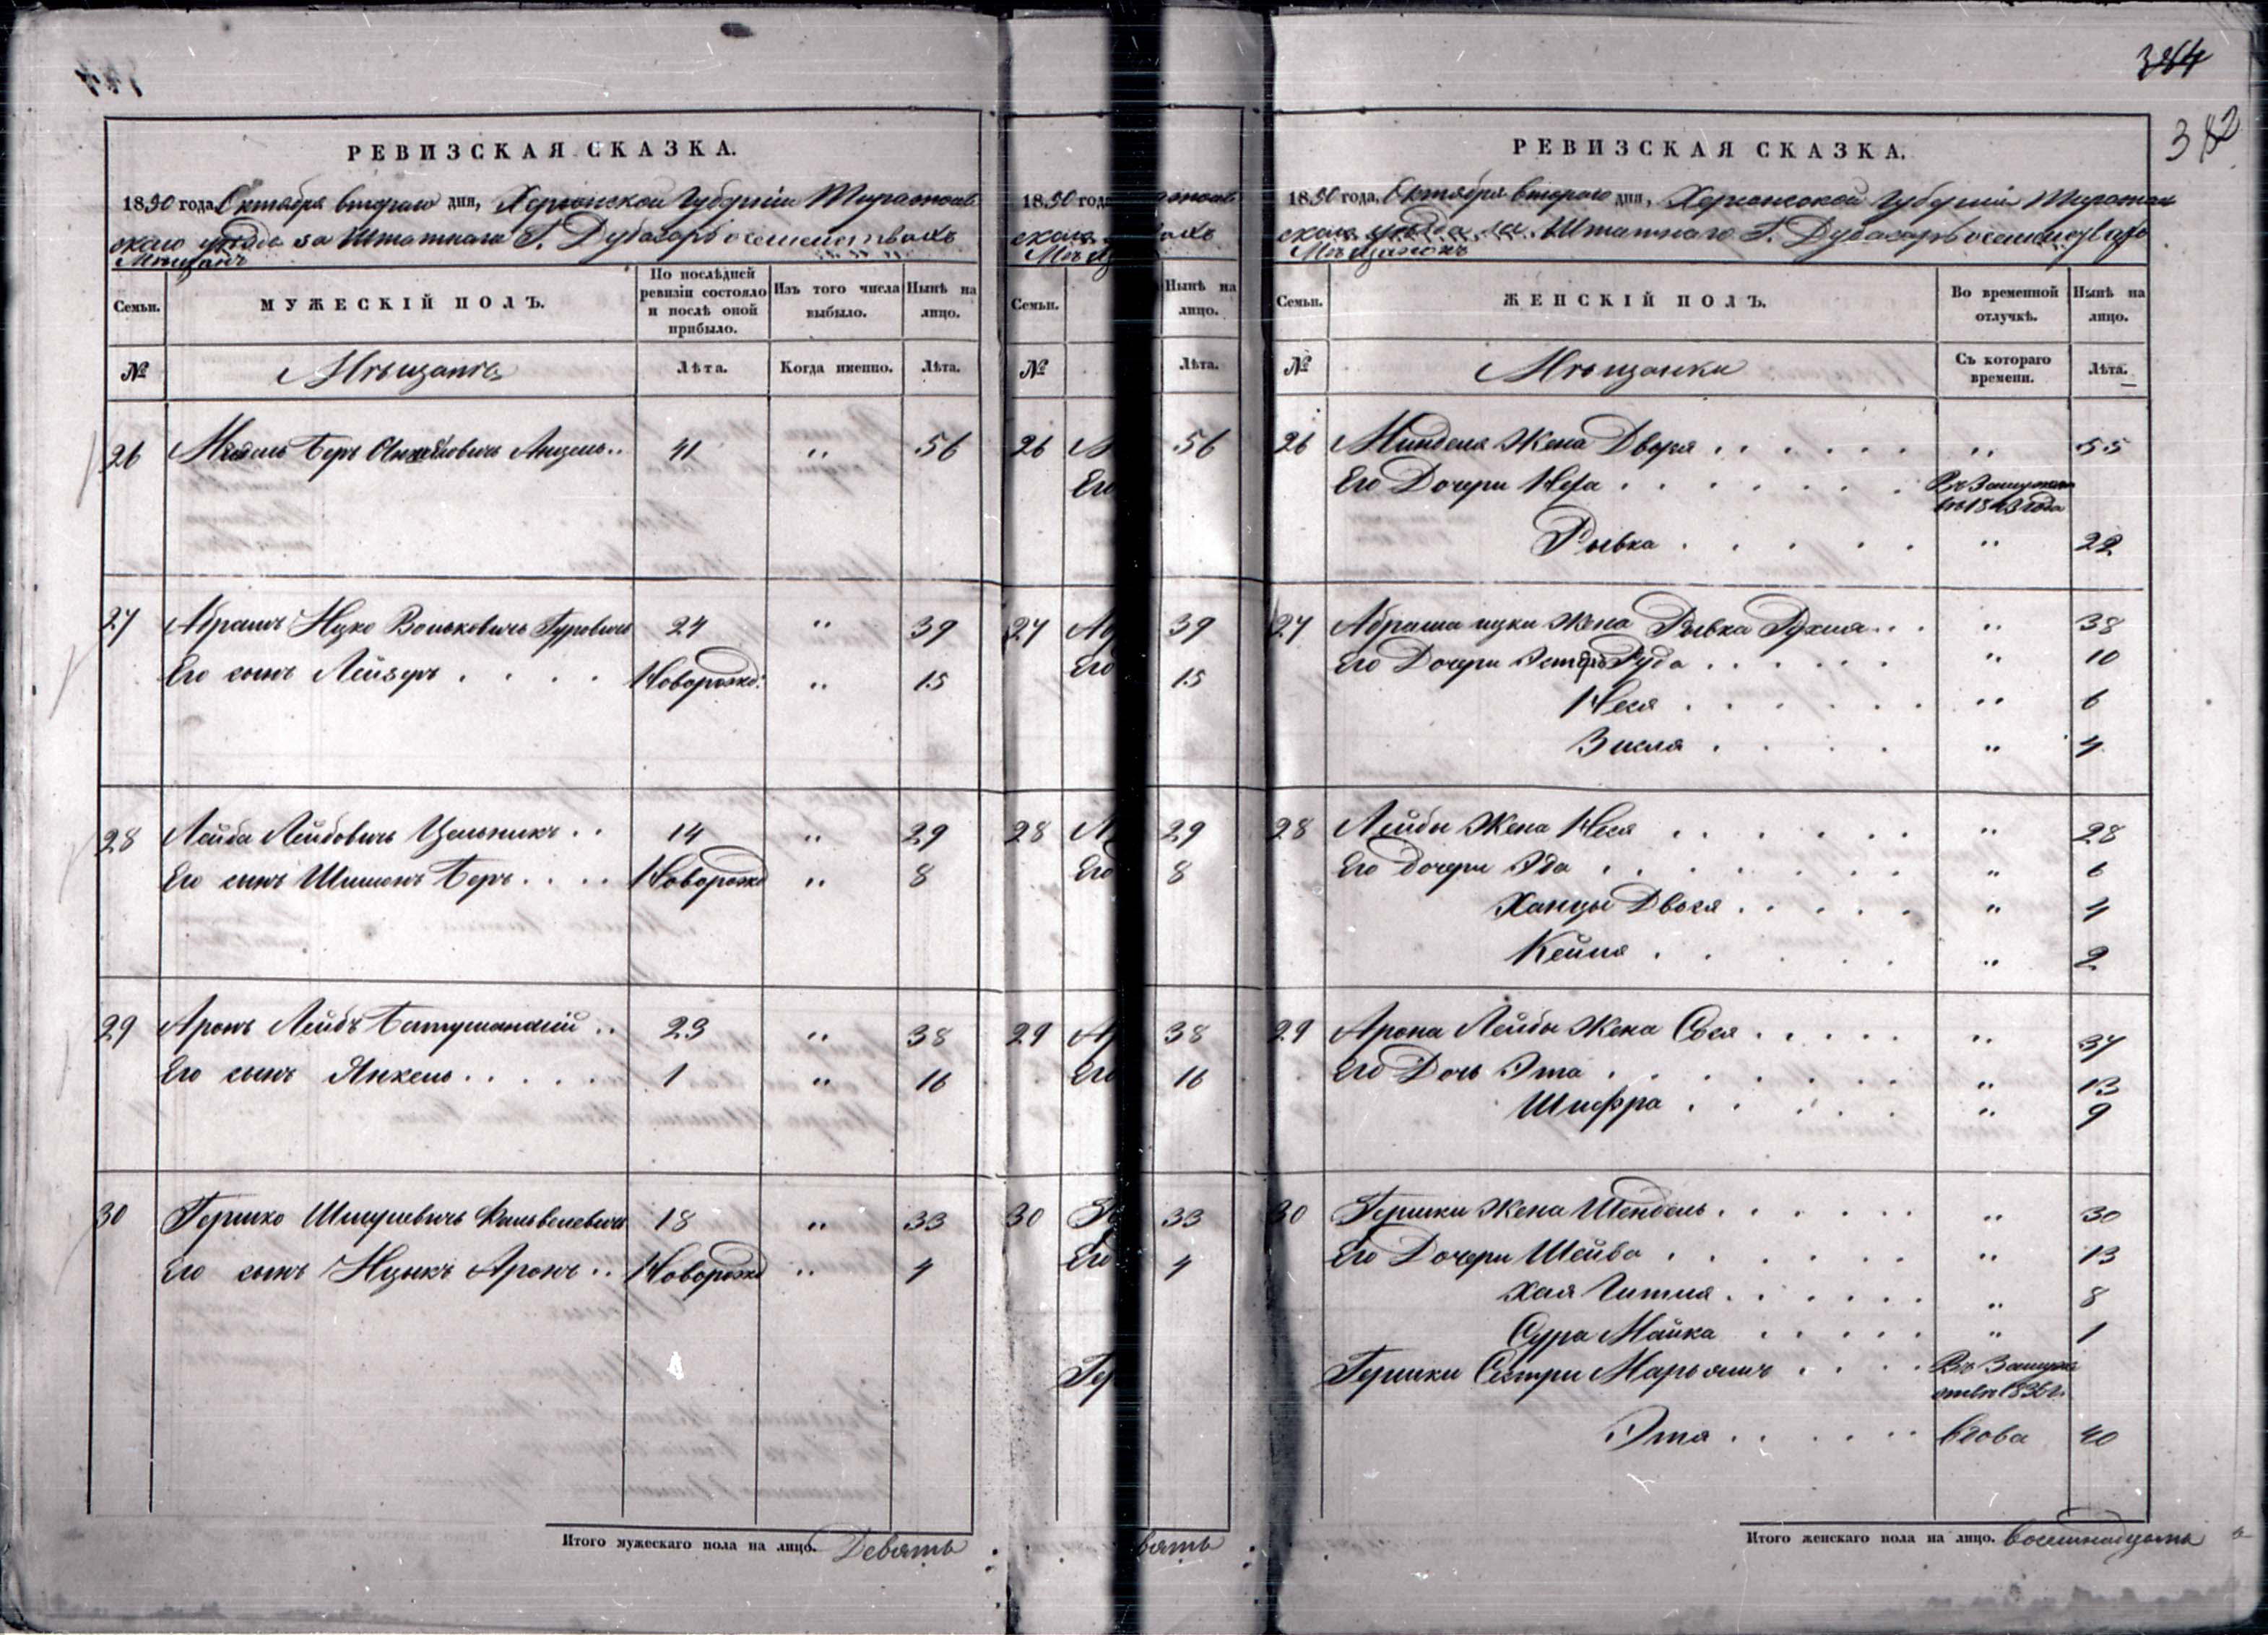 384
382
РЕВИЗСКАЯ СКАЗКА.
1850 года Октября втораго дня, Херсонской Губерніи Тираспол
скаго уѣзда за Штатнаго Г. Дубасаръ о
Мѣщанъ
Семьи.
МУЖЕСКІЙ ПОЛЪ.
По послѣдней ревизіи состояло и послѣ оной прибыло.
Изъ того числа выбыло.
Нынѣ на лицо.
№
Мѣщанѣ
Лѣта.
Когда именно.
Лѣта.
26 Беръ Анцель .. 41 " 56
27 Абрамъ Ицко Вольковичъ Гуровичъ 24 " 39
Его сынъ Лейзеръ . . . . Новорожд: " 15
28 Лейба Лейбовичъ Цельникъ . . 14 " 29
Его сынъ Шимонъ Беръ . . . . Новорожд " 8
29 Аронъ Лейбъ .. 23 " 38
Его сынъ Янкель . . . . . 1 " 16
30 Гершко Шмулевичъ 18 " 33
Его сынъ Ицыкъ Аронъ .. Новорожд " 4
Итого мужескаго пола на лицо. Девять
1850 года
скаго
Семьи.
Нынѣ на лицо.
№
Лѣта.
26 56
Его
27 39
Его 15
28 29
Его 8
29 38
Его 16
30 33
Его 4
Гер
вять
РЕВИЗСКАЯ СКАЗКА.
1850 года, Октября втораго дня, Херсонской Губерніи Тираспол
скаго уѣзда за Штатнаго Г. Дубасаръ о
Мѣщанокъ
Семьи.
ЖЕНСКІЙ ПОЛЪ.
Во временной отлучкѣ.
Нынѣ на лицо.
№
Мѣщанки
Съ котораго времени.
Лѣта.
26 Жена Двойра . . . . . . " 55
Его Дочери . . . . . . . Въ Замужест
1843 года
Рывка . . . . . " 22
27 Абрама ицки Жена Рывка Рухля . . . " 38
Его Дочери Эстеръ Руда . . . . . . " 10
Неся . . . . . . " 6
Зисля . . . . " 4
28 Лейбы Жена Неся . . . . . . " 28
Его дочери Эда . . . . . . . " 6
Ханцы Двося . . . . . " 4
Кейля . . . . . " 2
29 Арона Лейбы Жена Сося . . . . . " 37
Его Дочь Эта . . . . . . . " 13
Шифра . . . . . " 9
30 Гершки Жена Шендель . . . . . . " 30
Его Дочери Шейва . . . . . . " 13
Хая Гитля . . . . . . " 8
Сура Майка . . . . . " 1
Гершки Сестри Марьямъ . . . . Въ Замуже
ствѣ 1836 г.
Этя . . . . . . вдова 40
Итого женскаго пола на лицо. Восемнадцать